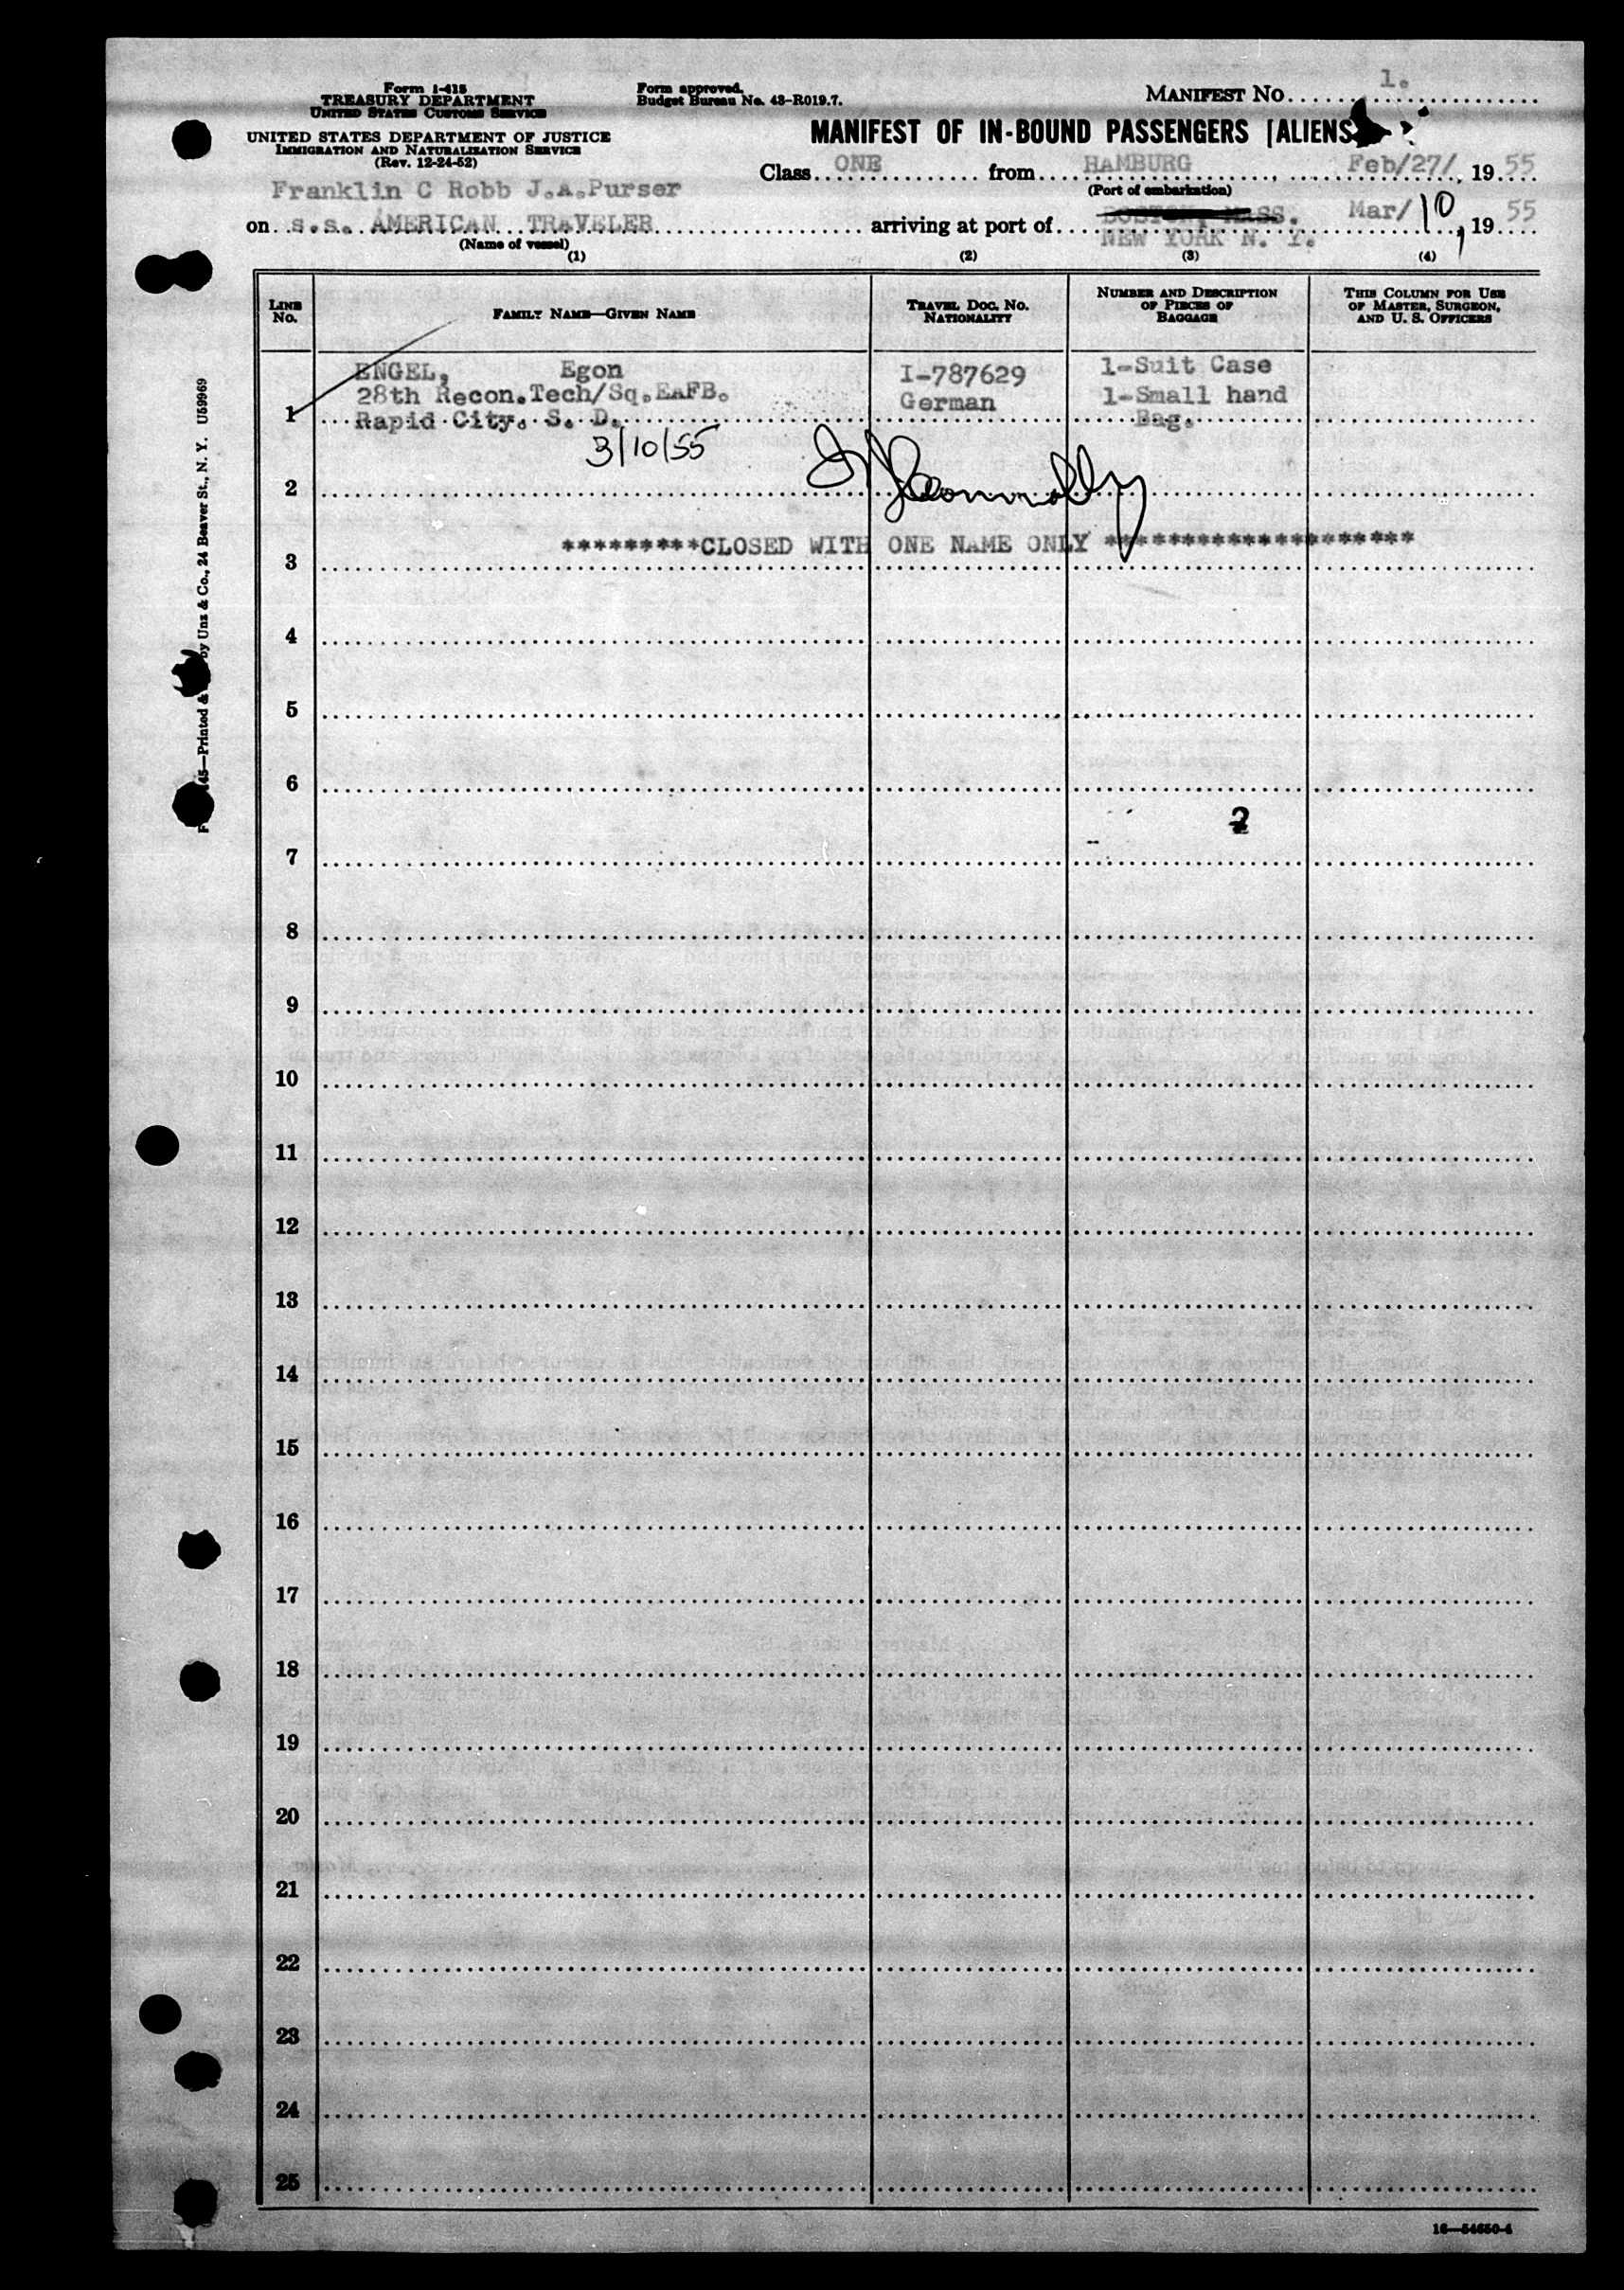 Form I-418
TREASURY DEPARTMENT
UNITED STATES CUSTOMS SERVICE
UNITED STATES DEPARTMENT OF JUSTICE
IMMIGRATION AND NATURALIZATION SERVICE
(Rev. 12-24-52)
Form approved.
Budget Bureau No. 43-R019.7.
MANIFEST NO. 1.
MANIFEST OF IN-BOUND PASSENGERS (ALIENS
Class ONE from HAMBURG, Feb/27/, 19 55
(Port of embarkation)
Franklin C Robb J.A.Purser
on s.s. AMERICAN TRAVELER arriving at port of BOSTON, MASS. Mar/10, 19 55
NEW YORK N. Y.
(Name of vessel)
(1) (2) (3) (4)
LINE NO.
FAMILY NAME—GIVEN NAME
TRAVEL DOC. NO. NATIONALITY
NUMBER AND DESCRIPTION OF PIECES OF BAGGAGE
THIS COLUMN FOR USE OF MASTER, SURGEON, AND U. S. OFFICERS
ENGEL, Egon I-787629 1-Suit Case
28th Recon.Tech/Sq.EAFB. German 1-Small hand
1 Rapid City. S. D. Bag.
3/10/55
2
*********CLOSED WITH ONE NAME ONLY ********************
3
4
5
6
2
7
8
9
10
11
12
13
14
15
16
17
18
19
20
21
22
23
24
25
16—54650-4
45—Printed & by Unz & Co., 24 Beaver St., N. Y. U59969